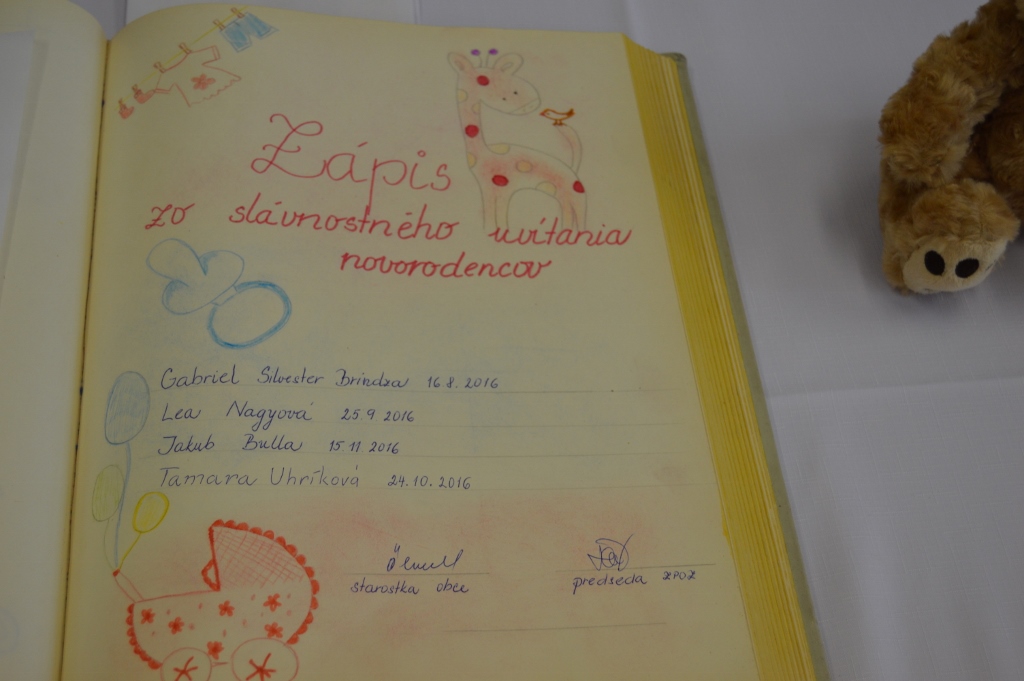 Zápis
zo slávnostného uvítania
novorodencov
Gabriel Silvester Brindza 16 8. 2016
Lea Nagyová 25. 9 2016
Jakub Bulla 15. 11. 2016
Tamara Uhríková 24. 10. 2016
starostka obce predseda ZPOZ